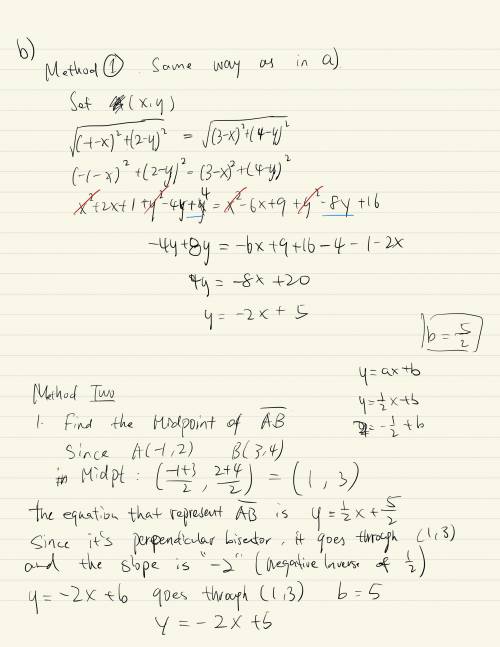 b)
Method ① . Same way as in a)
Set (x,y)
√((-1-x)²+(2-y)²) = √((3-x)²+(4-y)²)
(-1-x)²+(2-y)² = (3-x)²+(4-y)²
x²+2x+1+y²-4y+4 = x²-6x+9+y²-8y+16
-4y+8y = -6x+9+16-4-1-2x
4y = -8x+20
y = -2x+5
b = 5/2
y = ax+b
y = 1/2x+b
2 = -1/2+b
Method Two
1. Find the Midpoint of AB
Since A(-1,2) B(3,4)
Midpt : (-1+3/2, 2+4/2) = (1,3)
the equation that represent AB is y = 1/2x + 5/2
Since it's perpendicular bisector, it goes through (1,3)
and the slope is "-2" (negative Inverse of 1/2)
y = -2x+b goes through (1,3) b = 5
y = -2x+5